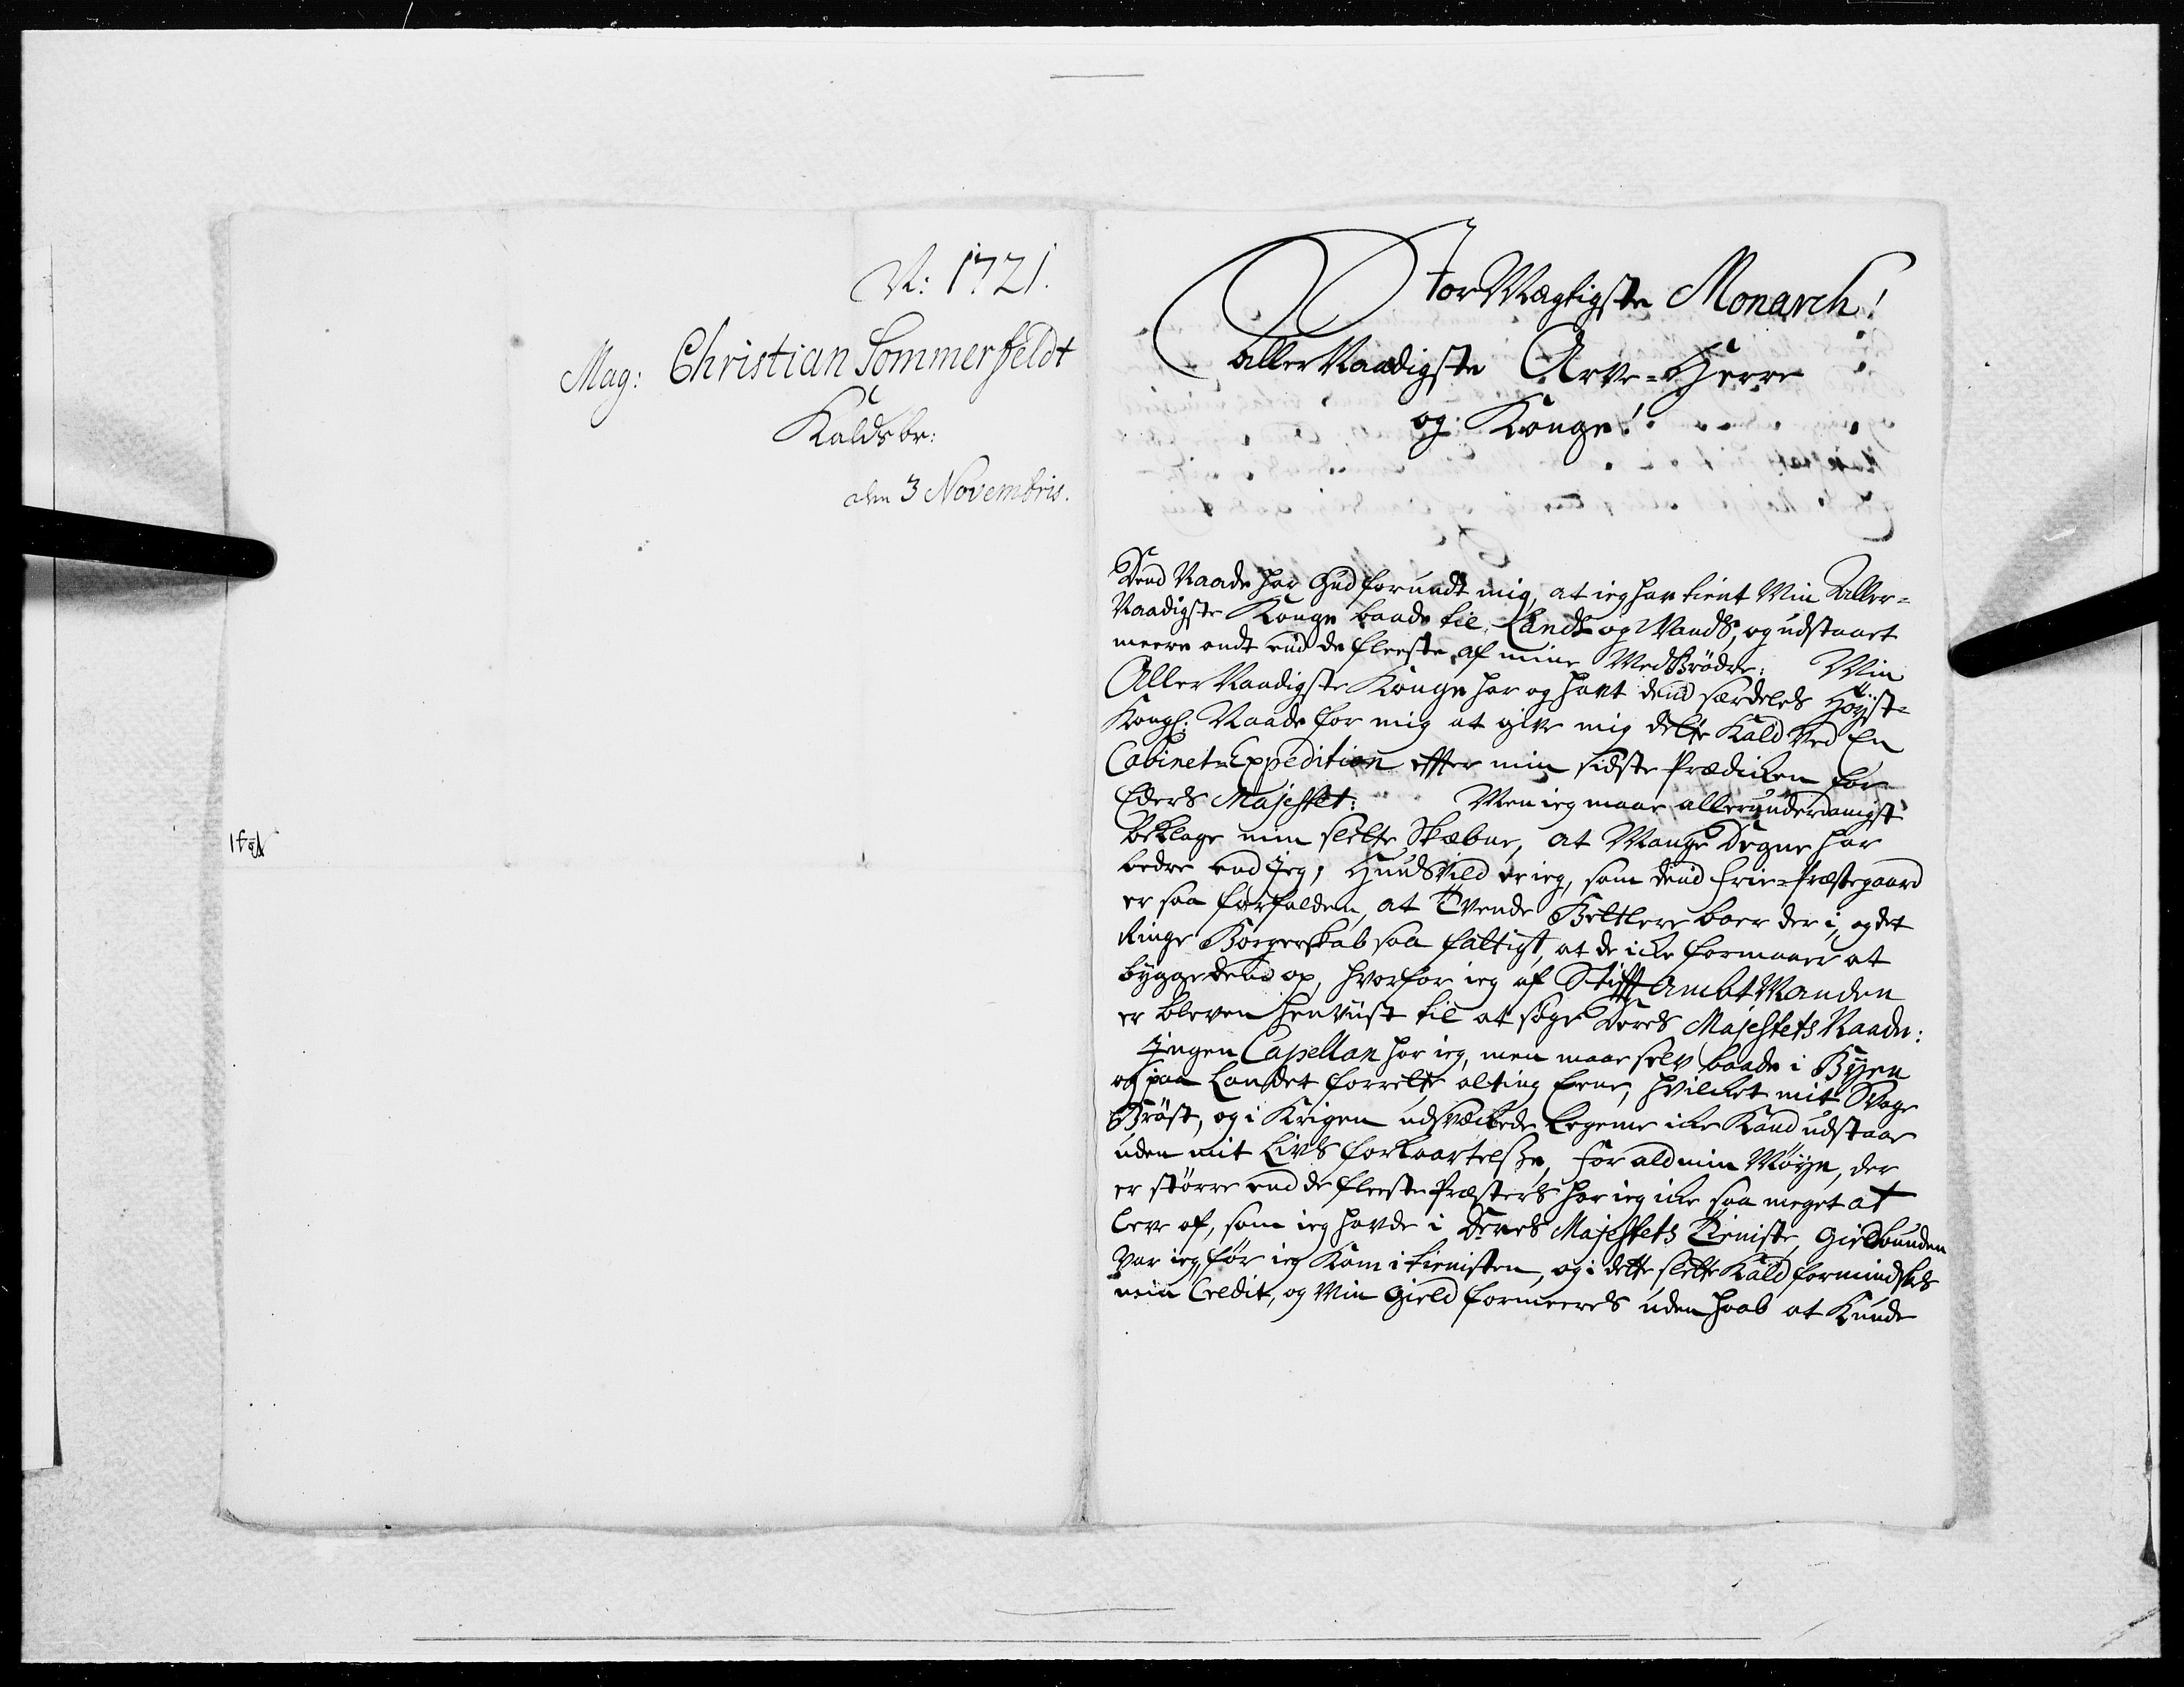 A: 1721.
Mag: Christian Sommerfeldt
Kaldsbr:
den 3 Novembris.
StorMægtigste Monarch!
Aller Naadigste Arve-Herre
og Konge!
Dend Naade har Gud forundt mig, at ieg har tient Min Aller-
Naadigste Konge baade til Lands og Vands, og udstaaet
meere ondt end de fleeste af mine MedBrödre: Min
Aller Naadigste Konge har og havt dend særdeles Höyst-
Kongl: Naade for mig at give mig dette Kald ved En
Cabinet-Expedition effter min sidste Prædicken for
Eders Majestet: Men ieg maae allerunderdanigst
beklage min slette Skæbne, at Mange Degne har
bedre end Jeg, HuusVild er ieg, som dend frie-Præstegaard
er saa forfalden, at Tvende Betlere boer der i, og det
Ringe Borgerskab saa fattigt, at de icke formaaer at
bygge dend op, hvorfor ieg af StifftAmbtManden
er bleven henviist til at söge Deres Majestets Naade:
Ingen Capellan har ieg, men maae selv baade i Byen
og paa Landet forrette alting Eene, hvilcket mit Svage
Bröst, og i Krigen udsvæckede Legeme icke Kand udstaae
uden mit Livs forkaartelse, for ald min Möye, der
er större end de fleeste Præsters har ieg icke saa meget at
leve af, som ieg havde i Deres Majestets Tieniste, Gieldbunden
var ieg, för ieg Kom i tienisten, og i dette slette Kald formindskes
min Credit, og Min Gield formeeres uden haab at Kunde